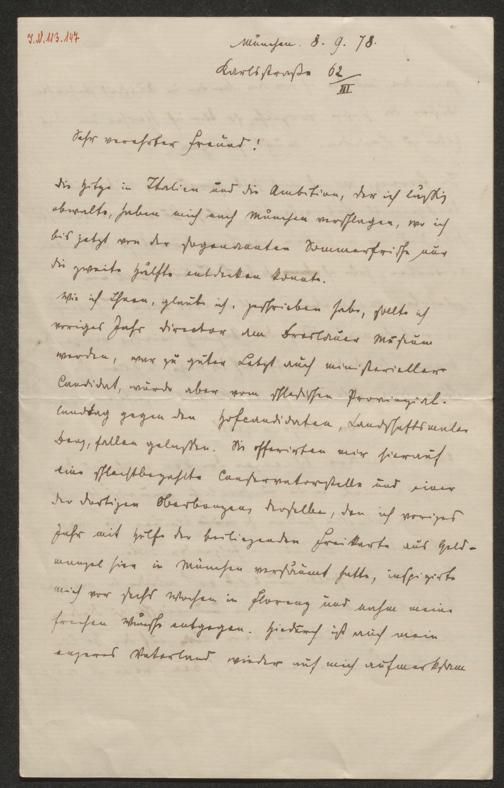 I.N. 113.147
München. 8. 9. 78.
Karlsstraße 62
III
Sehr verehrter Freund!
Die Hitze in Italien und die Ambition, der ich lässig
obwalte, haben mich nach München verschlagen, wo ich
bis jetzt von der sogenannten Sommerfrische nur
die zweite Hälfte entdecken konnte.
Wie ich Ihnen, glaube ich, geschrieben habe, sollte ich
voriges Jahr Director am Breslauer Museum
werden, war zu guter Letzt auch ministerieller
Candidat, wurde aber vom schlesischen Provinzial-
landtag gegen den Hofcandidaten, Landschaftsmaler
Berg, fallen gelassen. Sie offerirten mir hierauf
eine schlechtbezahlte Conservatorstelle und einer
der dortigen Oberbonzen, derselbe, den ich voriges
Jahr mit Hülfe der beiliegenden Freikarte aus Geld-
mangel hier in München versäumt hatte, inspizirte
mich vor sechs Wochen in Florenz und nahm meine
frechen Wünsche entgegen. Hiedurch ist auch mein
engeres Vaterland wieder auf mich aufmerksam